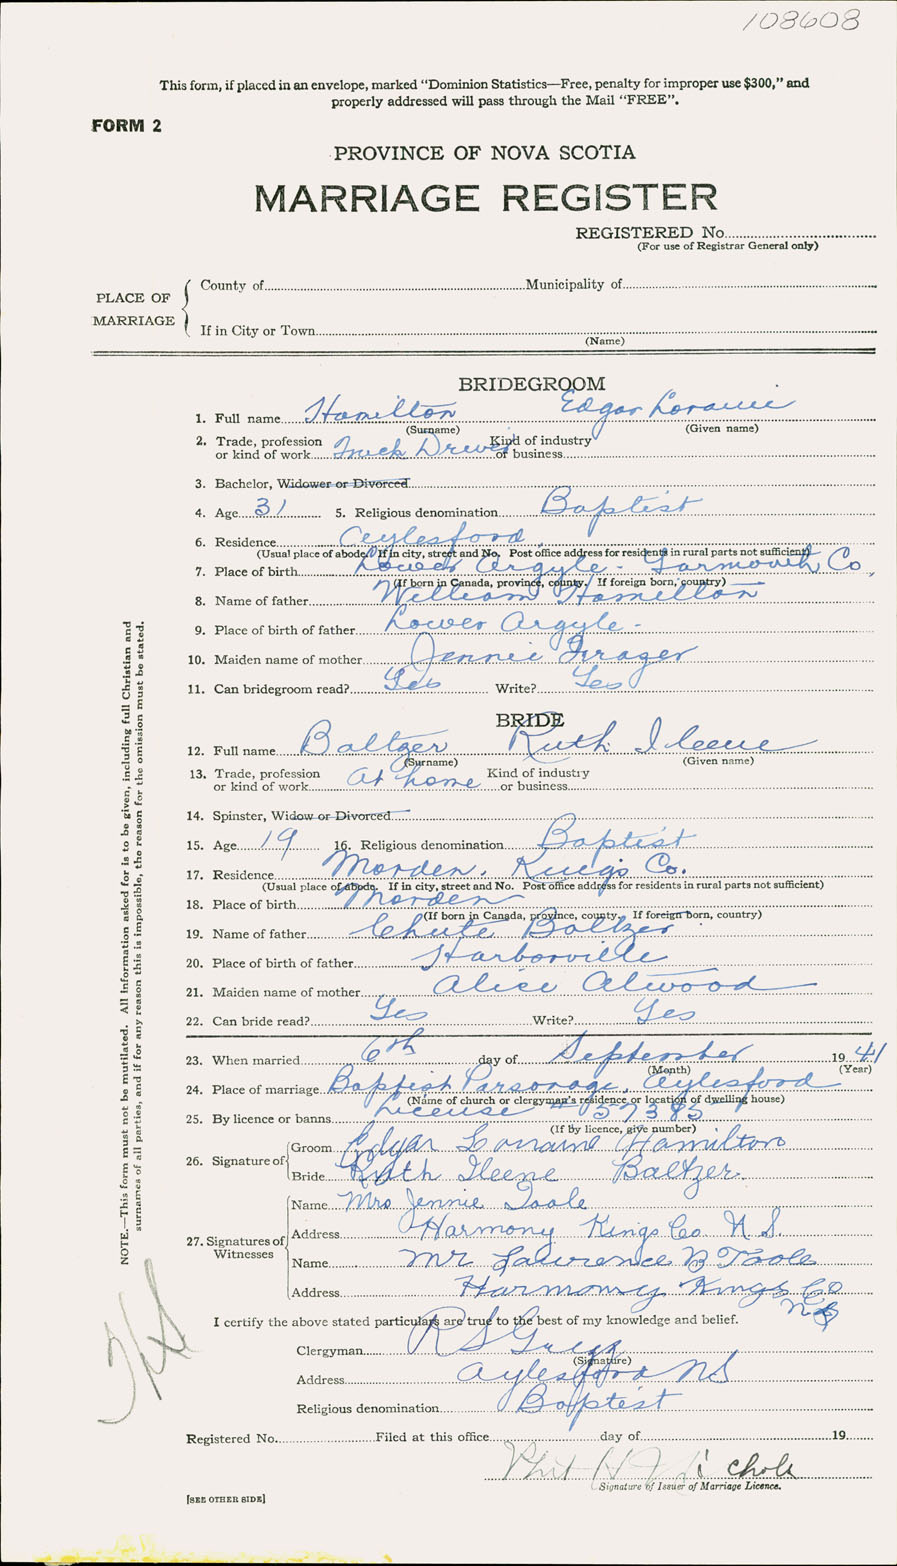 108608
This form, if placed in an envelope, marked "Dominion Statistics—Free, penalty for improper use $300," and
properly addressed will pass through the Mail "FREE".
FORM 2
PROVINCE OF NOVA SCOTIA
MARRIAGE REGISTER
REGISTERED No.
(For use of Registrar General only)
PLACE OF MARRIAGE
County of Municipality of
If in City or Town
(Name)
BRIDEGROOM
1. Full name Hamilton Edgar Loraine
(Surname) (Given name)
2. Trade, profession or kind of work Truck Driver Kind of industry or business
3. Bachelor, Widower or Divorced
4. Age 31 5. Religious denomination Baptist
6. Residence Aylesford
(Usual place of abode. If in city, street and No. Post office address for residents in rural parts not sufficient)
7. Place of birth Lower Argyle - Yarmouth Co.,
(If born in Canada, province, county. If foreign born, country)
8. Name of father William Hamilton
9. Place of birth of father Lower Argyle -
10. Maiden name of mother Jennie
11. Can bridegroom read? Yes Write? Yes
BRIDE
12. Full name Baltzer Ruth Ileene
(Surname) (Given name)
13. Trade, profession or kind of work At home Kind of industry or business
14. Spinster, Widow or Divorced
15. Age 19 16. Religious denomination Baptist
17. Residence Morden, Kings Co.
(Usual place of abode. If in city, street and No. Post office address for residents in rural parts not sufficient)
18. Place of birth Morden
(If born in Canada, province, county. If foreign born, country)
19. Name of father Chute Baltzer
20. Place of birth of father Harborville
21. Maiden name of mother Alice Atwood
22. Can bride read? Yes Write? Yes
23. When married 6th day of September 1941
(Month) (Year)
24. Place of marriage Baptist Parsonage, Aylesford
(Name of church or clergyman's residence or location of dwelling house)
25. By licence or banns License # 57385
(If by licence, give number)
26. Signature of Groom Edgar Lorraine Hamilton
Bride Ruth Ileene Baltzer.
27. Signatures of Witnesses
Name Mrs Jennie Toole
Address Harmony Kings Co. N.S.
Name Mr Lawrence B Toole
Address Harmony Kings Co
NS
I certify the above stated particulars are true to the best of my knowledge and belief.
Clergyman R S Gregg
(Signature)
Address Aylesford NS
Religious denomination Baptist
Registered No. Filed at this office day of 19
Nichols
Signature of Issuer of Marriage Licence.
[SEE OTHER SIDE]
NOTE.—This form must not be mutilated. All Information asked for is to be given, including full Christian and
surnames of all parties, and if for any reason this is impossible, the reason for the omission must be stated.